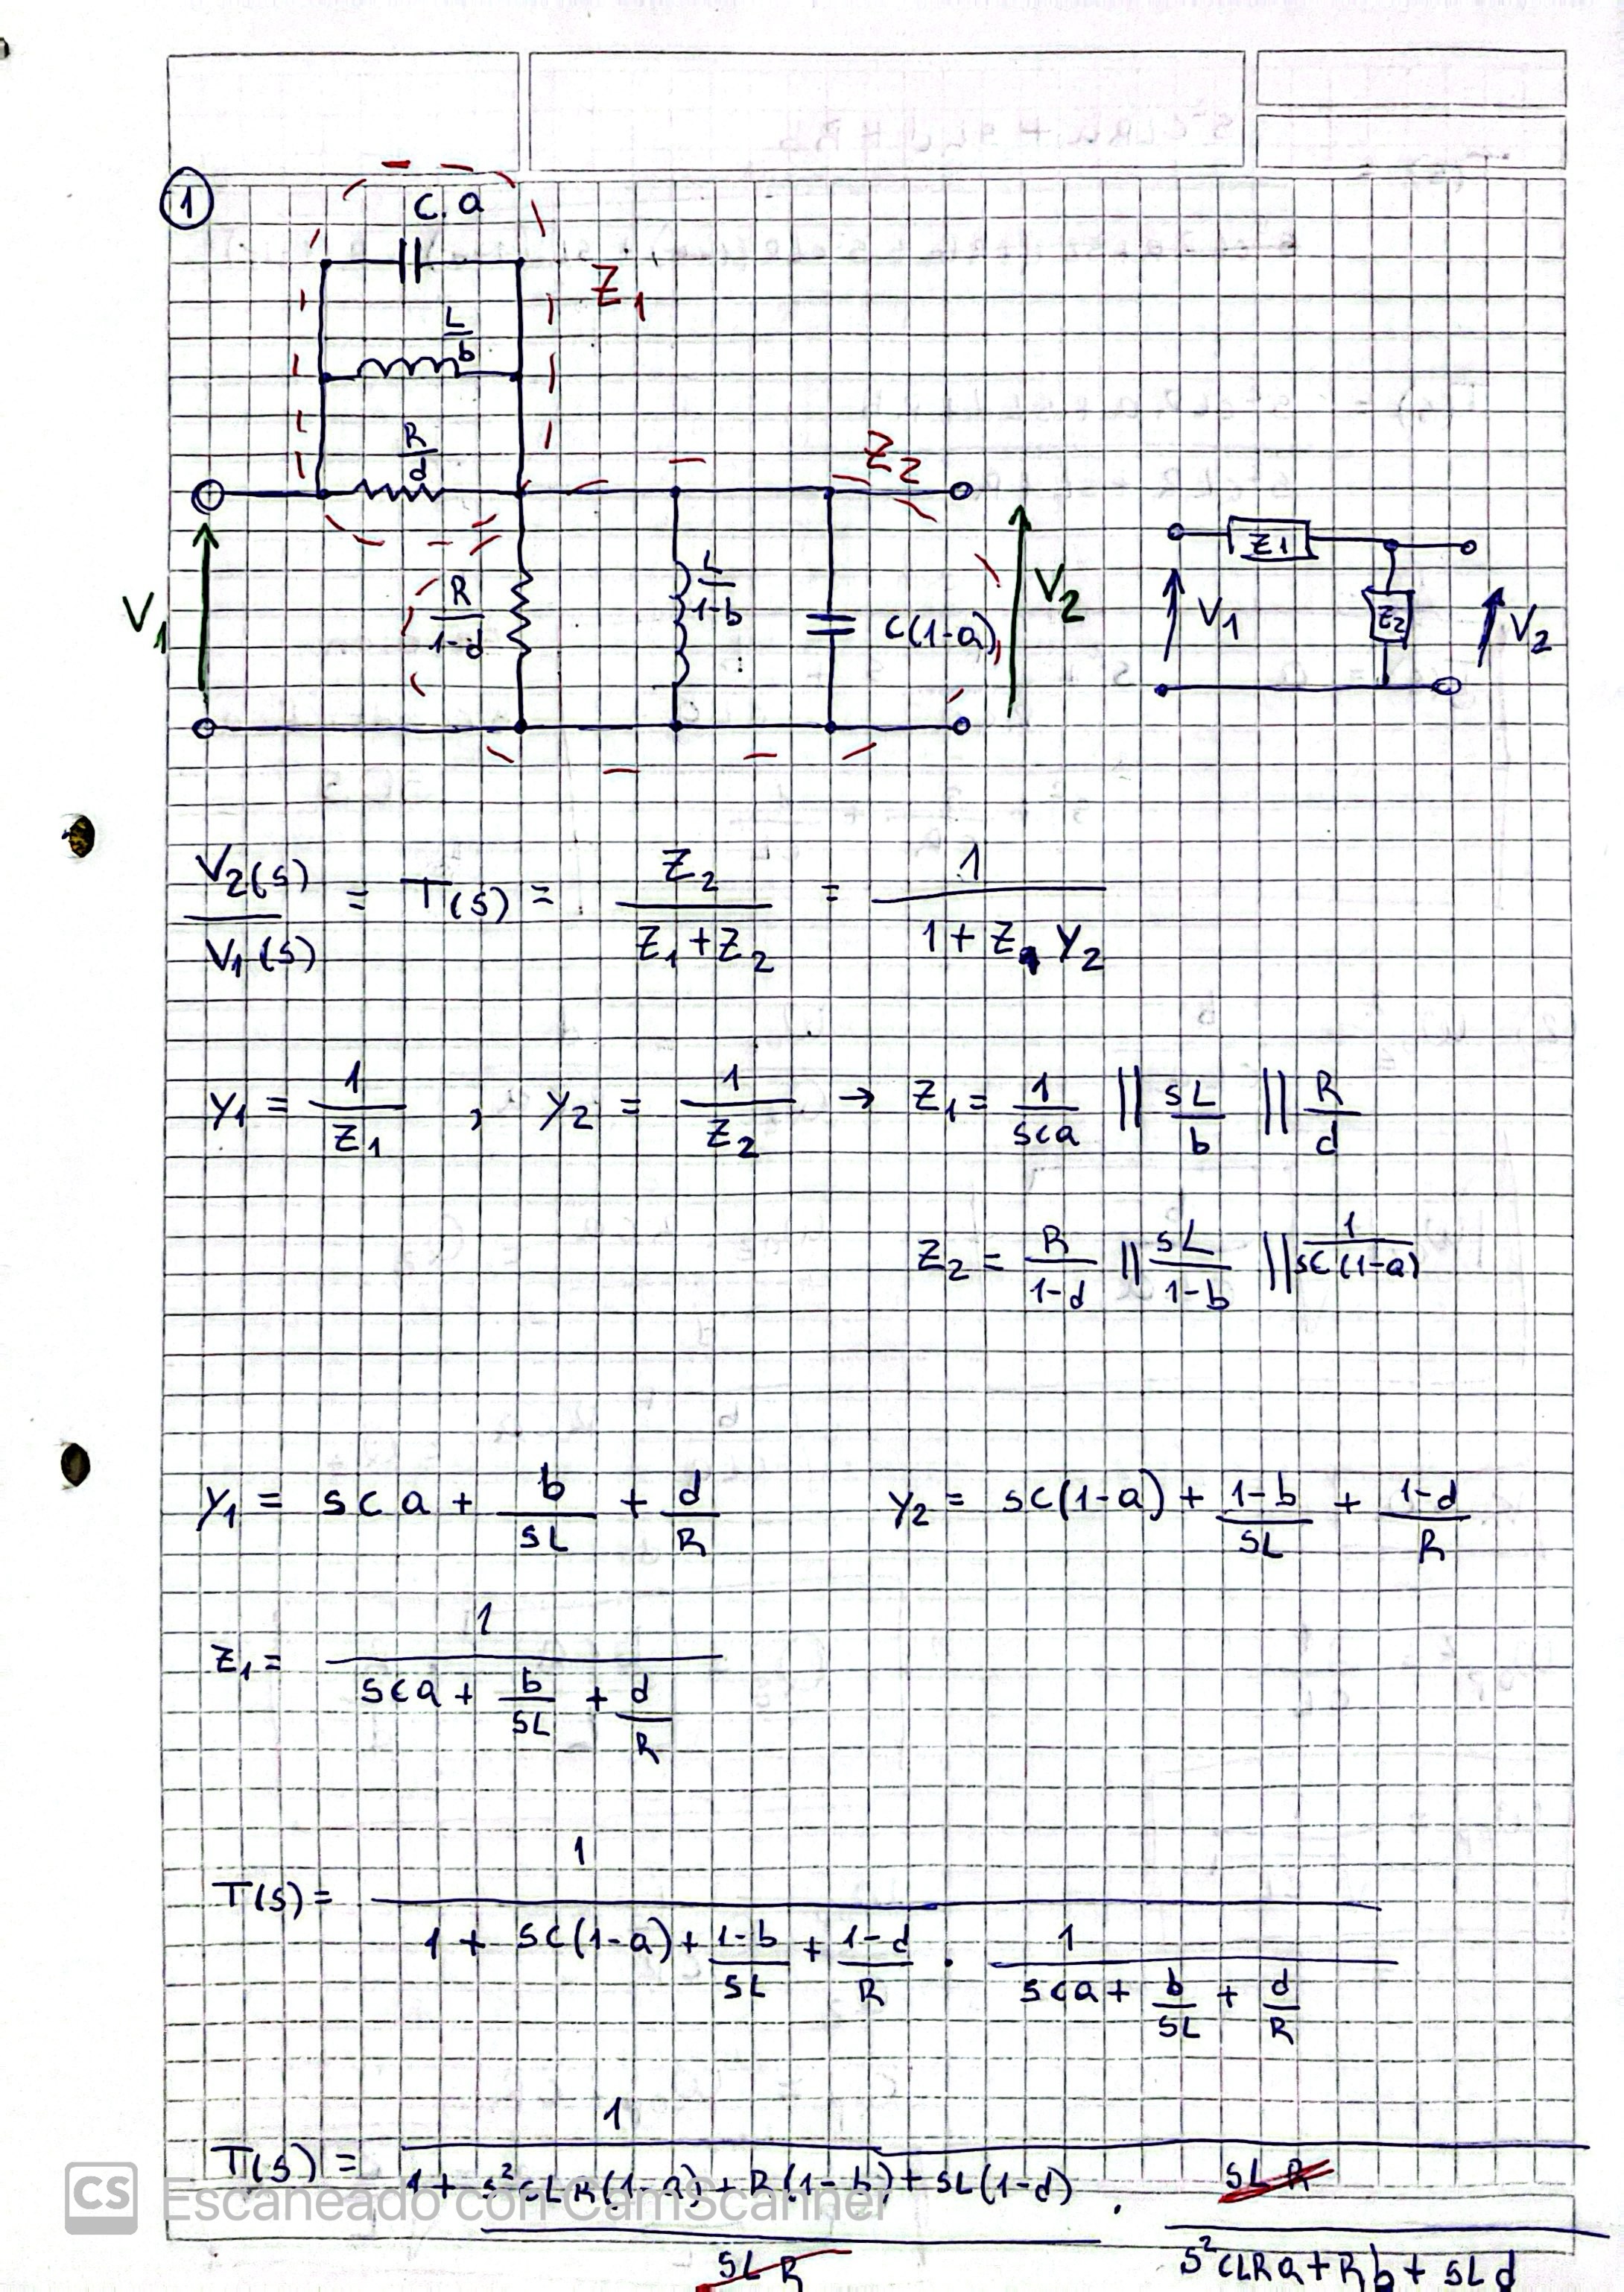 1
C.a
Z1
L/b
R/d
Z2
V1
R/(1-d)
L/(1-b)
C(1-a)
V2
Z1
V1
Z2
V2
V2(s)/V1(s) = T(s) = Z2/(Z1+Z2) = 1/(1+Z1 Y2)
Y1 = 1/Z1 , Y2 = 1/Z2 → Z1 = 1/sca || sL/b || R/d
Z2 = R/(1-d) || sL/(1-b) || 1/(sC(1-a))
Y1 = sca + b/sL + d/R Y2 = sc(1-a) + (1-b)/sL + (1-d)/R
Z1 = 1/(sca + b/sL + d/R)
T(s) = 1/(1 + sc(1-a) + (1-b)/sL + (1-d)/R . 1/(sca + b/sL + d/R))
T(s) = 1/(1 + (s²cLR(1-a) + R(1-b) + sL(1-d))/sLR . sLR/(s²cLRa + Rb + sLd))
CS Escaneado con CamScanner